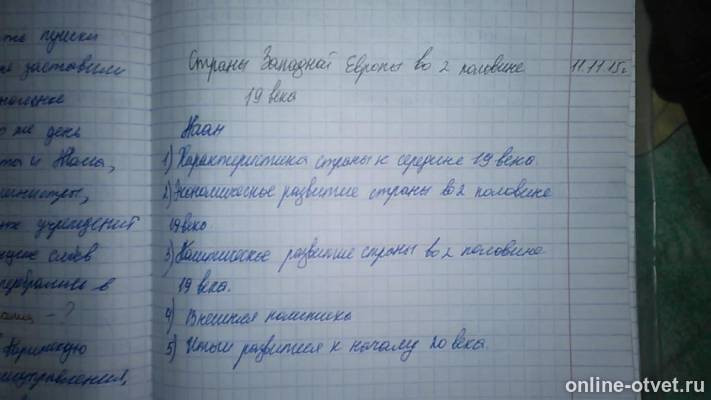 же пуски
заставили
же день
и Жана,
учреждений
слов
перебрались в
- ?
Страны Западной Европы во 2 половине
11.11.15г
19 века
План
1) Характеристика страны к середине 19 века.
2) Экономическое развитие страны во 2 половине
19 века
3) Политическое развитие страны во 2 половине
19 века.
4) Внешняя политика
5) Итоги развития к началу 20 века.
online-otvet.ru